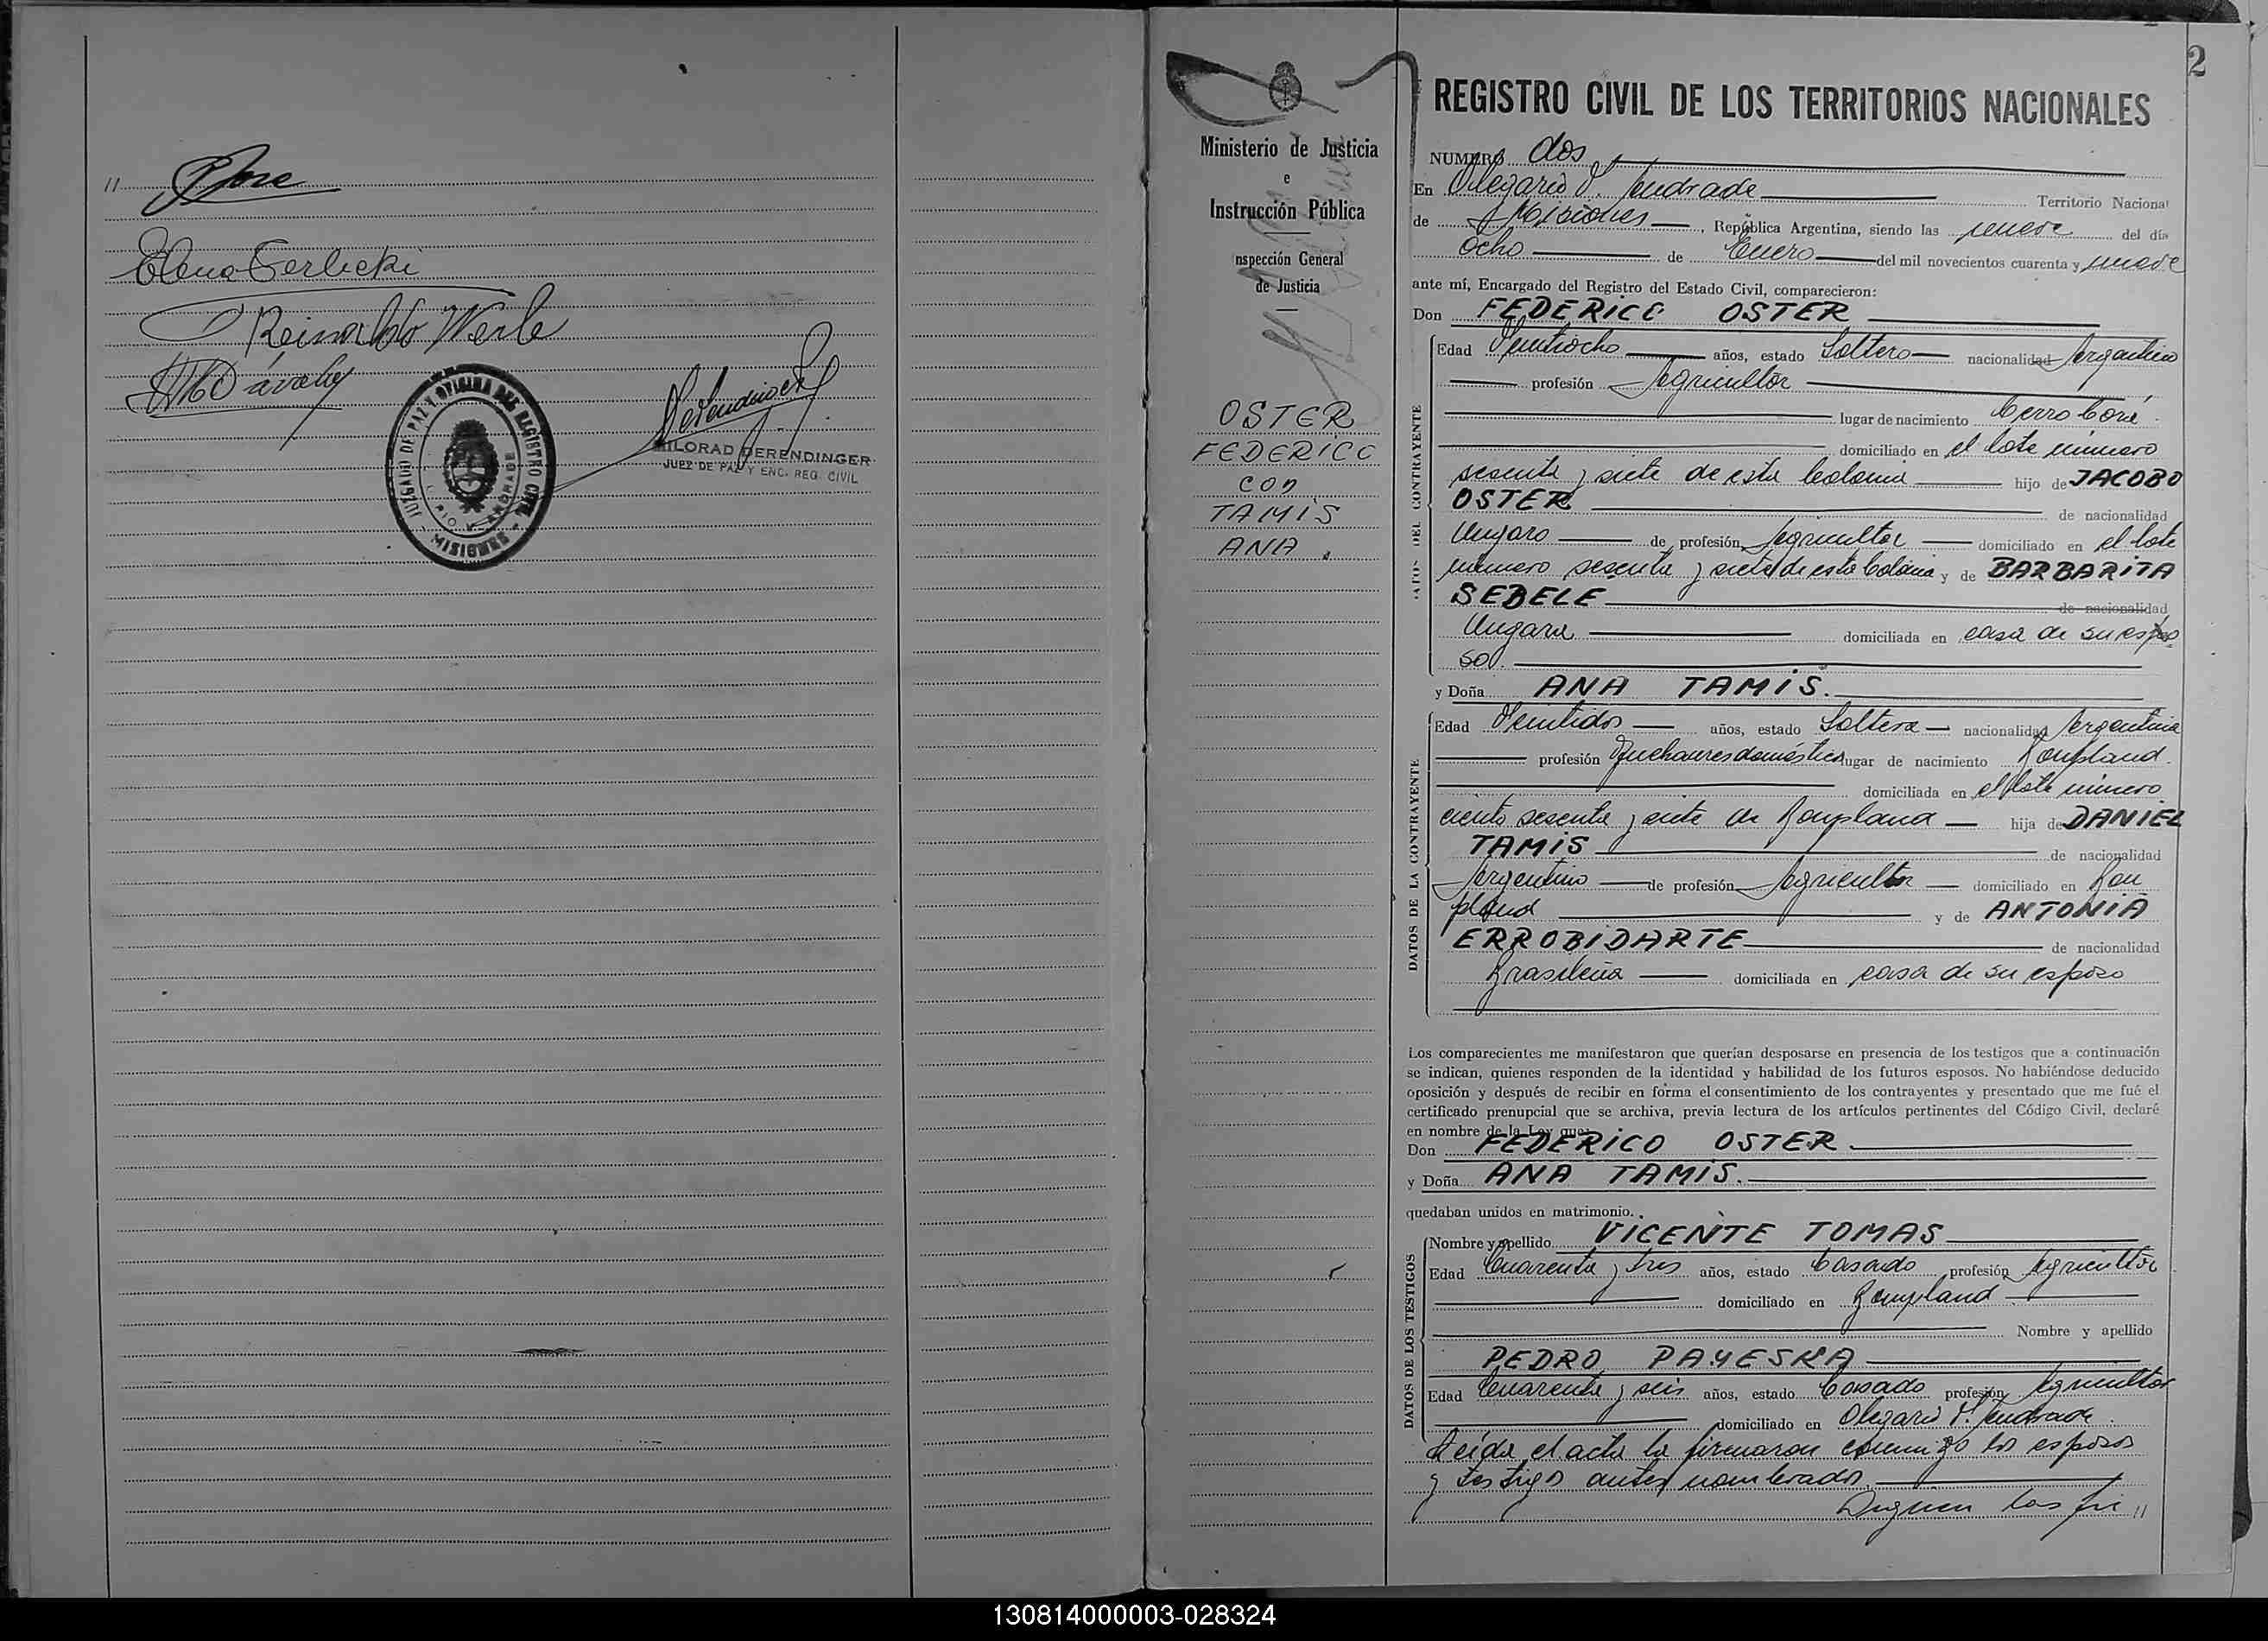 Elena Gerlicki
Reinaldo Werle
JUZGADO DE PAZ Y OFICINA DEL REGISTRO CIVIL
MISIONES
MILORAD DERENDINGER
JUEZ DE PAZ Y ENC. REG. CIVIL
2
Ministerio de Justicia
e
Instrucción Pública
nspección General
de Justicia
OSTER
FEDERICO
con
TAMIS
ANA.
REGISTRO CIVIL DE LOS TERRITORIOS NACIONALES
NUMERO dos
En Olegario V. Andrade Territorio Nacional
de Misiones, República Argentina, siendo las nueve del día
ocho de Enero del mil novecientos cuarenta y nueve
ante mí, Encargado del Registro del Estado Civil, comparecieron:
Don FEDERICO OSTER
DATOS DEL CONTRAYENTE
Edad Veintiocho años, estado Soltero nacionalidad Argentino
profesión Agricultor
lugar de nacimiento Cerro Corá
domiciliado en el lote número
sesenta y siete de esta Colonia hijo de JACOBO
OSTER de nacionalidad
Ungaro de profesión Agricultor domiciliado en el lote
número sesenta y siete de esta Colonia y de BARBARITA
SEBELE de nacionalidad
Ungara domiciliada en casa de su espo
so.
y Doña ANA TAMIS.
DATOS DE LA CONTRAYENTE
Edad Veintidos años, estado Soltera nacionalidad Argentina
profesión Quehaceres domésticos lugar de nacimiento Bonpland.
domiciliada en el lote número
ciento sesenta y siete de Bonpland hija de DANIEL
TAMIS de nacionalidad
Argentino de profesión Agricultor domiciliado en Bon
pland y de ANTONIA
ERROBIDARTE de nacionalidad
Brasileña domiciliada en casa de su esposo
Los comparecientes me manifestaron que querían desposarse en presencia de los testigos que a continuación
se indican, quienes responden de la identidad y habilidad de los futuros esposos. No habiéndose deducido
oposición y después de recibir en forma el consentimiento de los contrayentes y presentado que me fué el
certificado prenupcial que se archiva, previa lectura de los artículos pertinentes del Código Civil, declaré
en nombre de la Ley que:
Don FEDERICO OSTER
y Doña ANA TAMIS.
quedaban unidos en matrimonio.
DATOS DE LOS TESTIGOS
Nombre y apellido VICENTE TOMAS
Edad Cuarenta y tres años, estado Casado profesión Agricultor
domiciliado en Bonpland
Nombre y apellido
PEDRO PAYESKA
Edad Cuarenta y seis años, estado Casado profesión Agricultor
domiciliado en Olegario V. Andrade.
Leida el acta la firmaron conmigo los esposos
y testigos antes nombrados.
Siguen las fir //
130814000003-028324